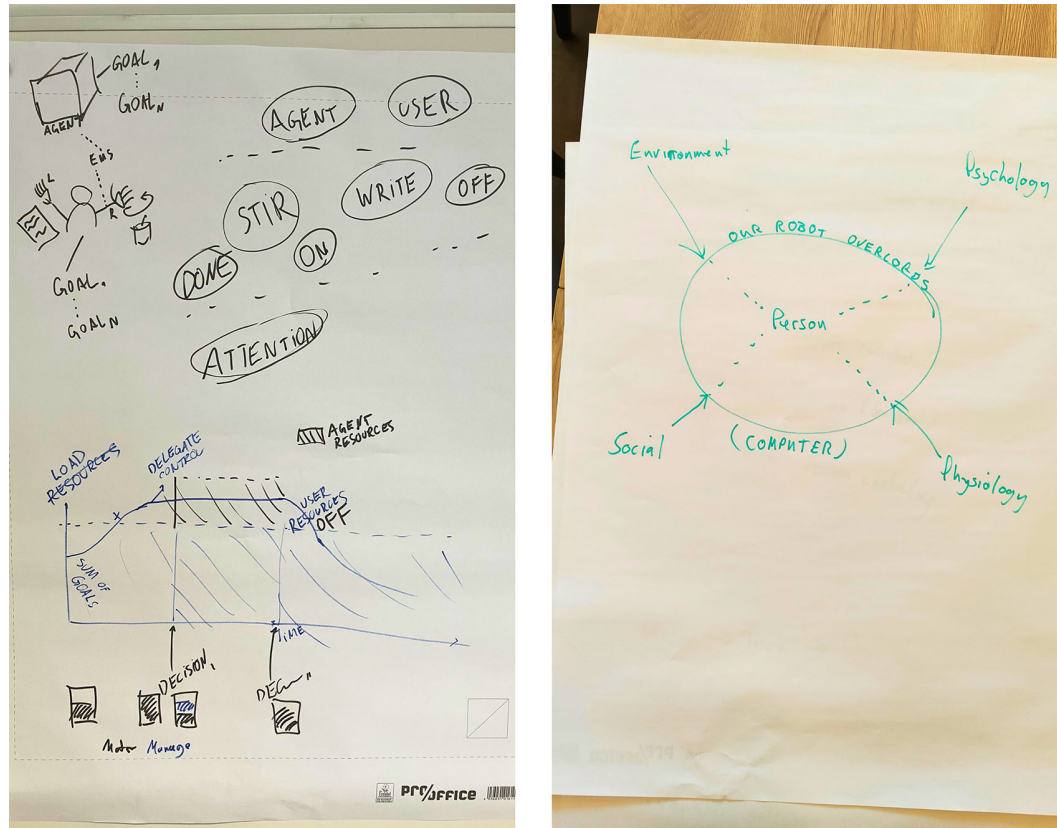 GOAL 1
GOAL N
AGENT
EMS
L
R
GOAL 1
GOAL N
AGENT
USER
STIR
WRITE
OFF
DONE
ON
ATTENTION
AGENT
RESOURCES
LOAD
RESOURCES
DELEGATE
CONTROL
USER
RESOURCES
OFF
SUM OF
GOALS
TIME
DECISION 1
Motor Manage
PRO/OFFICE
Environment
Psychology
OUR ROBOT OVERLORDS
Person
Social
(COMPUTER)
Physiology